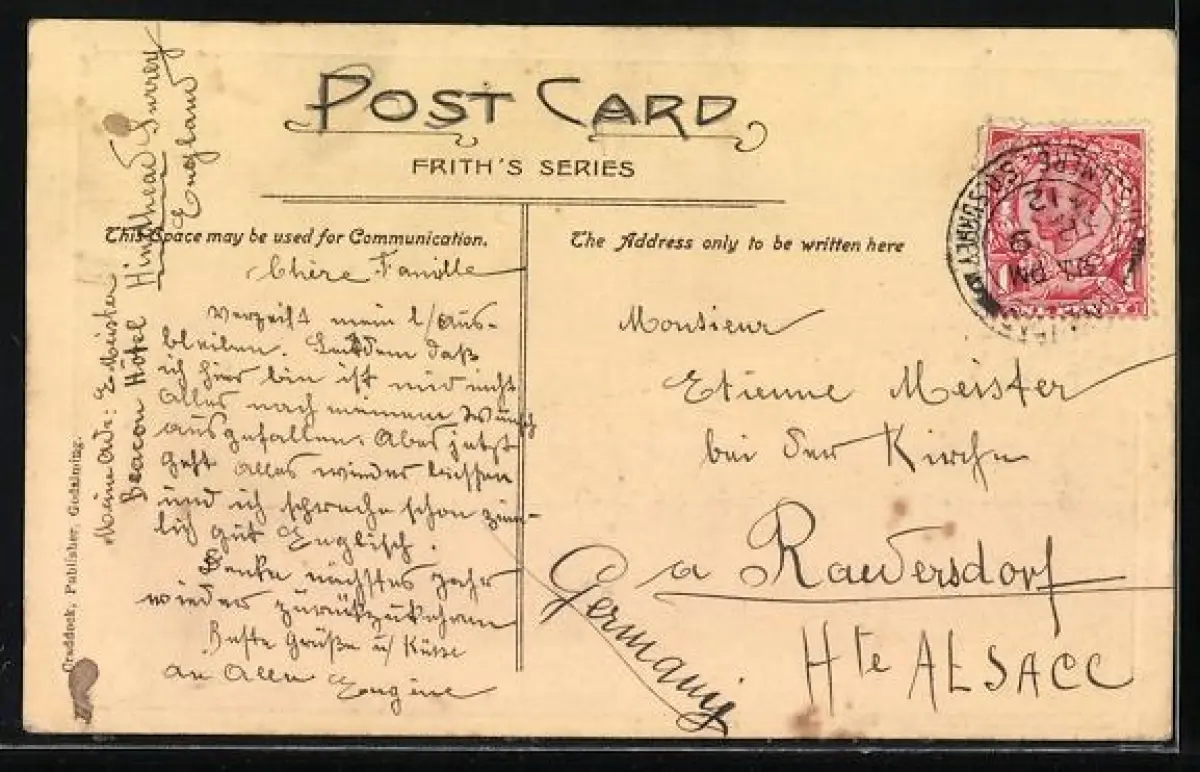 POST CARD
FRITH'S SERIES
This Space may be used for Communication.
The Address only to be written here
Chère Famille
Verzeiht mein l/ Aus-
bleiben. Seitdem daß
ich hier bin ist mir nicht
Alles nach meinem Wunsch
ausgefallen. Aber jetzt
geht alles wieder besser
und ich spreche schon ziem-
lich gut Englisch.
Denke nächstes Jahr
wieder zurückzukehren
Beste Grüße u/ Küsse
an Allen Eugène
Meine Adr: E. Meister
Beacon Hôtel Hindhead Surrey
England
Monsieur
Etienne Meister
bei der Kirche
a Raedersdorf
Hte ALSACE
Germany
Craddock, Publisher, Godalming.
SURREY
PM
12